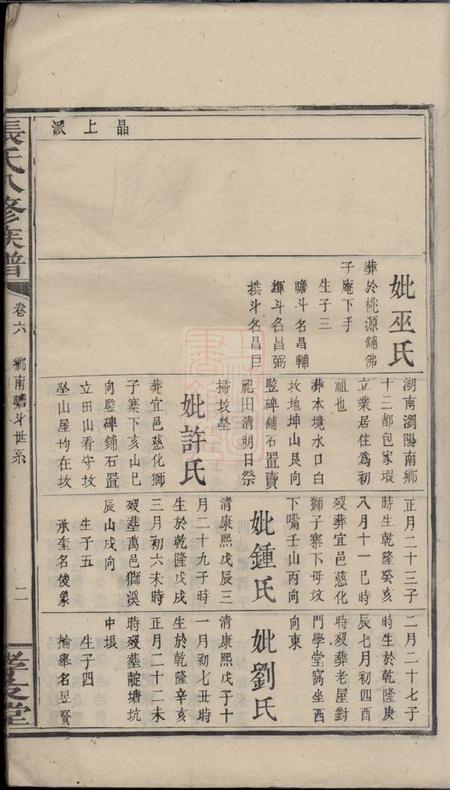 晶上派
妣巫氏
葬於桃源舖佛
子庵下手
生子三
贍斗名昌輔
輝斗名昌弼
拱斗名昌巨
湖南瀏陽南鄉
十三都包家塅
立業居住為初
祖也
葬本境水口白
坟地坤山艮向
監碑鋪石置賣
祀田清明日祭
掃坟塋
妣許氏
葬宜邑慈化鄉
子寨下亥山巳
向監碑鋪石置
立田山看守坟
塋山屋均在坟
正月二十三子
時生於乾隆癸亥
八月十一巳時
歿葬宜邑慈化
獅子寨下母坟
下嘴壬山丙向
妣鍾氏
清康熙戊辰三
月二十九子時
生於乾隆戊戌
三月初六未時
歿葬萬邑獅溪
辰山戌向
生子五
承奎名俊彙
二月二十七子
時生於乾隆庚
辰七月初四酉
時歿葬老屋對
門學堂窩坐西
向東
妣劉氏
清康熙戊子十
一月初七丑時
生於乾隆辛亥
正月二十二未
時歿葬靛塘坑
中垠
生子四
掄舉名昱賢
張氏八修族譜
卷六
鄉南贍斗世系
二
孝友堂